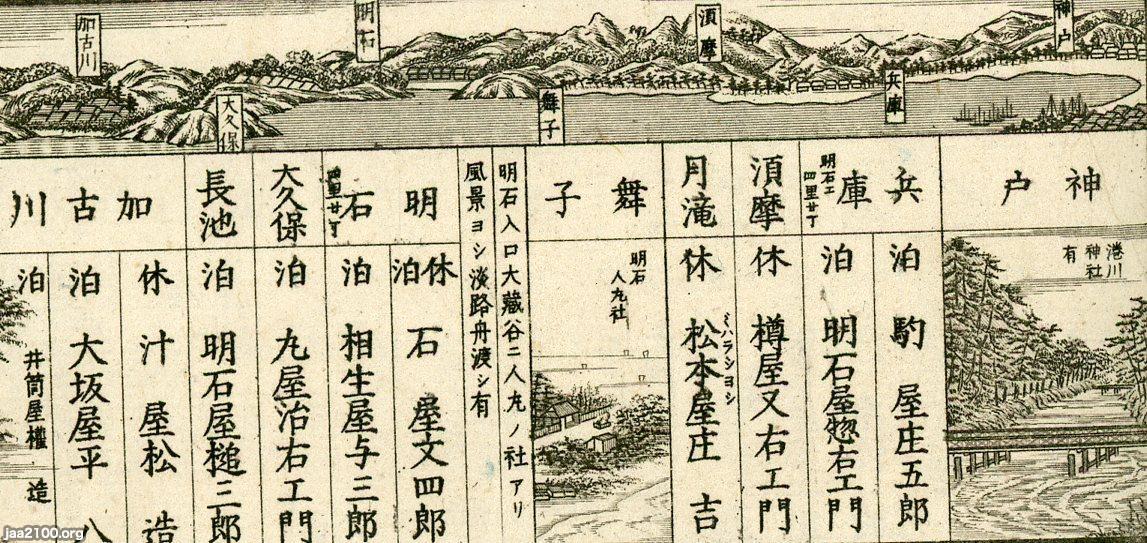 神戸
兵庫
須摩
舞子
明石
大久保
加古川
神戸
湊川神社有
兵庫
明石エ四里廿丁
泊 駒屋庄五郎
泊 明石屋惣右エ門
須摩
休 樽屋又右エ門
月滝
休 松本屋庄吉
ミハラシヨシ
舞子
明石人丸社
明石入口大蔵谷ニ人丸ノ社アリ
風景ヨシ淡路舟渡シ有
明石
四里廿丁
休泊 石屋文四郎
泊 相生屋与三郎
大久保
泊 丸屋治右エ門
長池
泊 明石屋槌三郎
加古川
休 汁屋松造
泊 大坂屋平八
泊 井筒屋權造
jaa2100.org